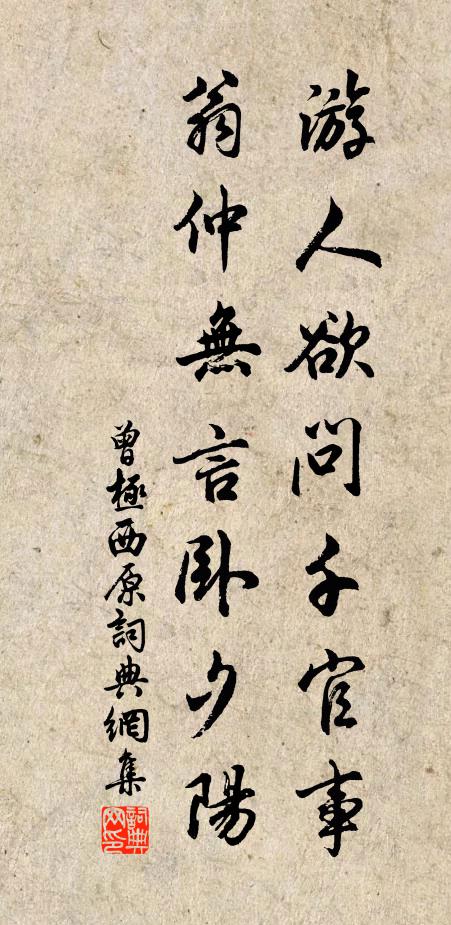 游人欲問千官事
翁仲無言卧夕陽
曾極西原詞典網集
詞典网印